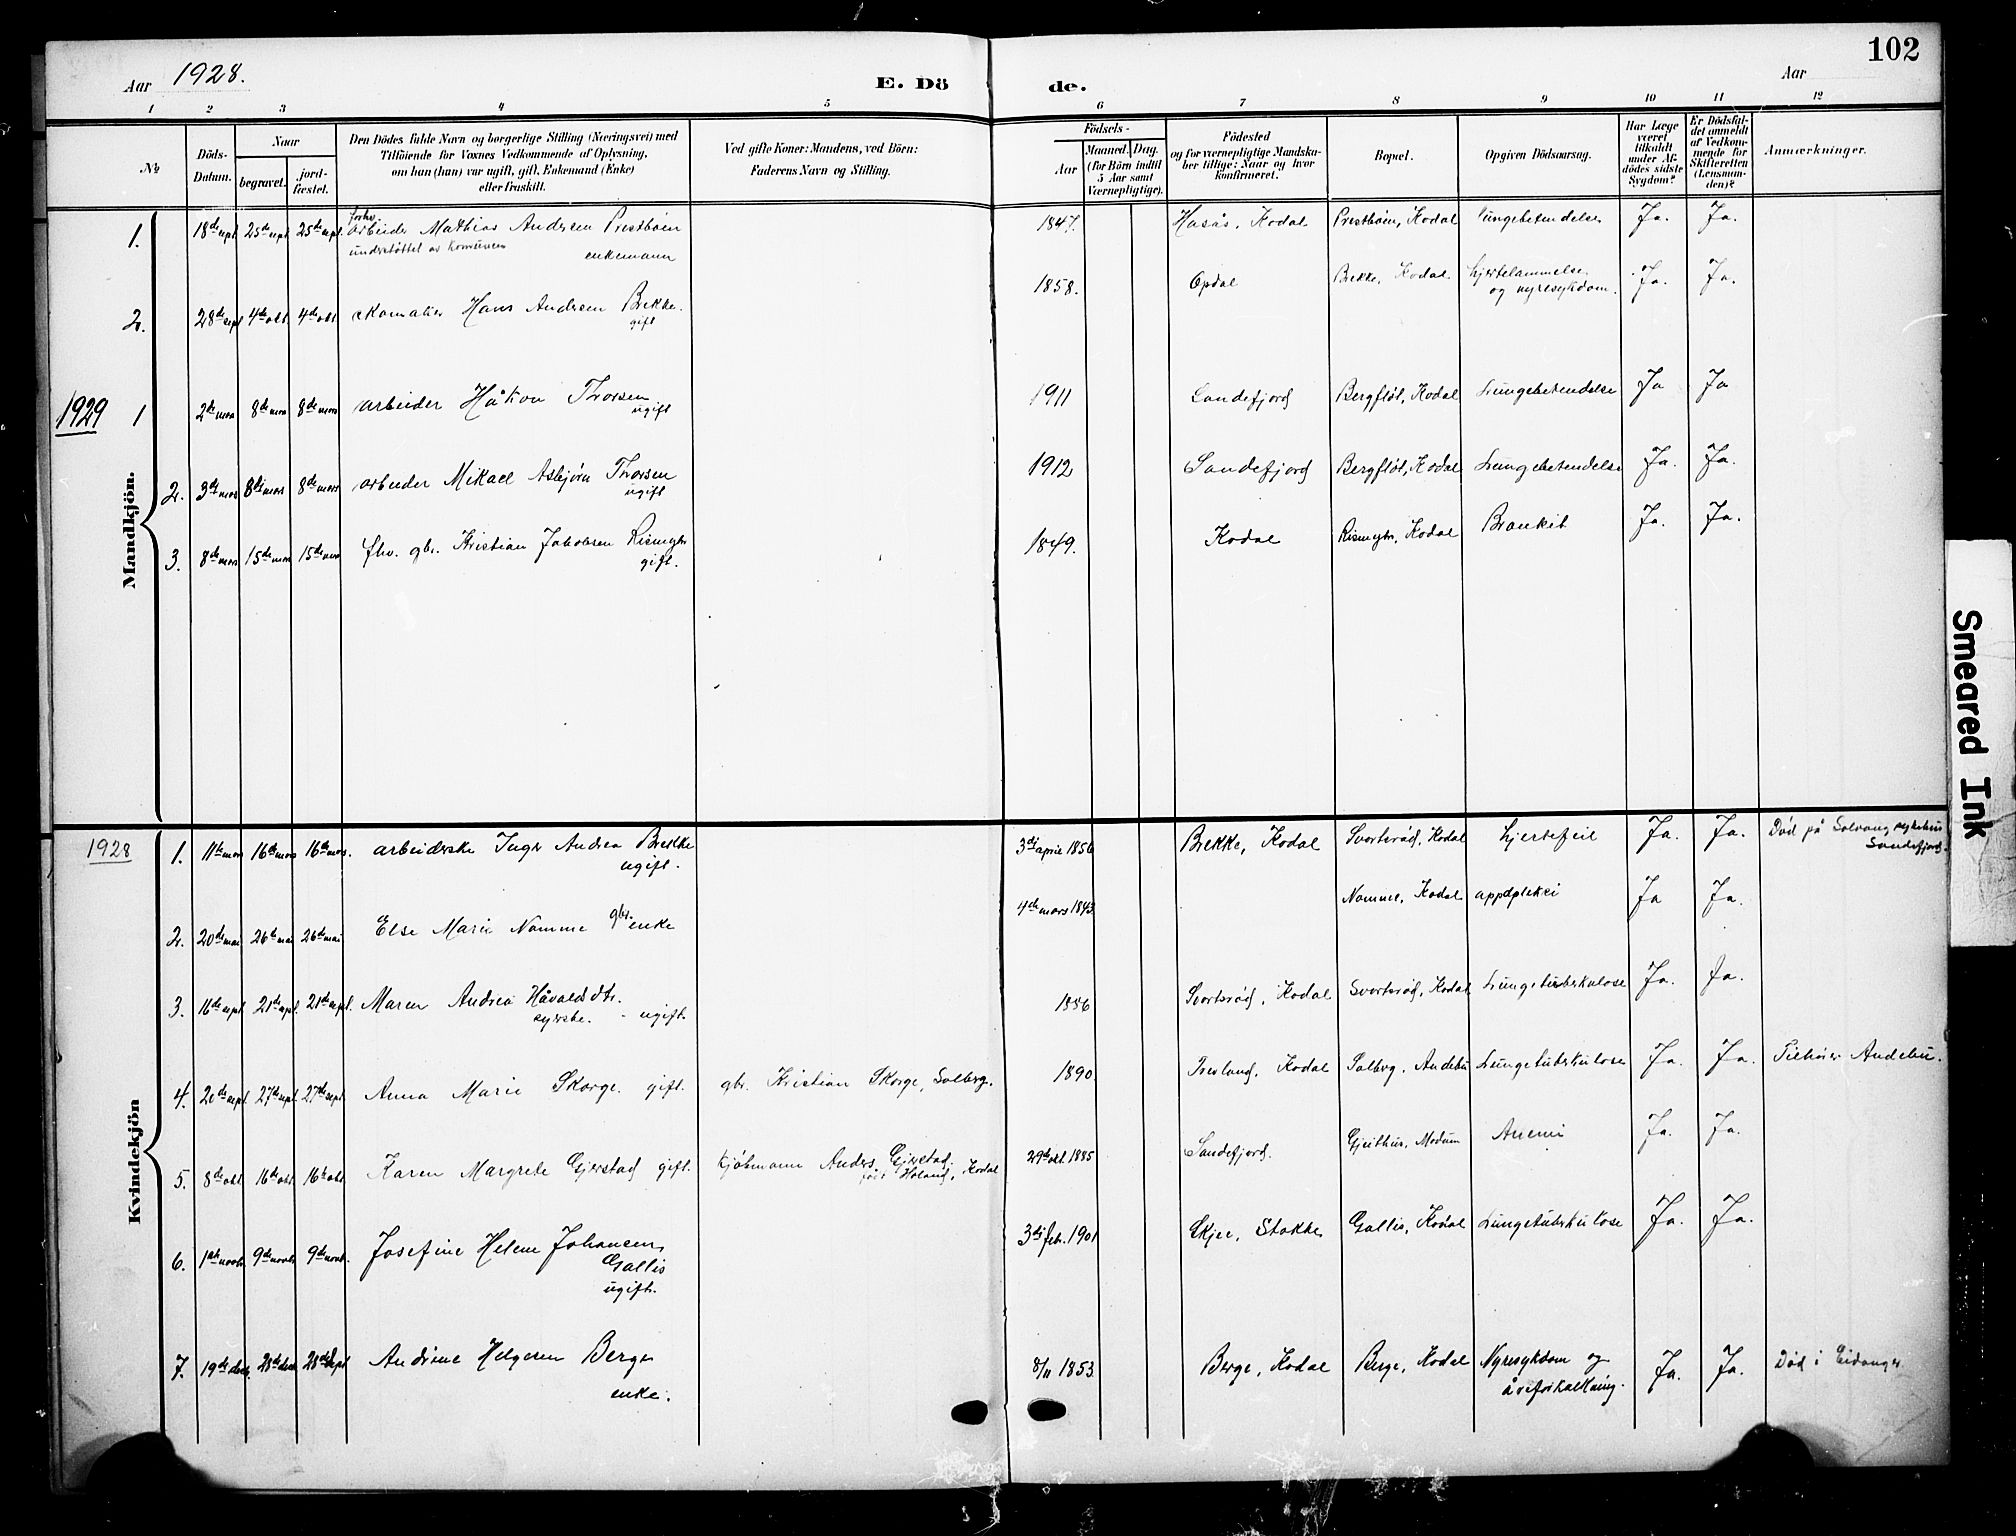 102
Aar 1928. E. Dö de. Aar
1 2 3 4 5 6 7 8 9 10 11 12
№
Döds-Datum.
Naar
begravet.
jord-fæstet.
Den Dödes fulde Navn og borgerlige Stilling (Næringsvei) med
Tilföiende for Voxnes Vedkommende af Oplysning,
om han (hun) var ugift, gift, Enkemand (Enke)
eller fraskilt.
Ved gifte Koner: Mandens, ved Börn:
Faderens Navn og Stilling.
Födsels-
Aar
Maaned. Dag.
(for Börn indtil
5 Aar samt
Værnepligtige).
Födested
og for værnepligtige Mandska-
ber tillige: Naar og hvor
konfirmeret.
Bopæl.
Opgiven Dödsaarsag.
Har Læge
været
tilkaldt
under Af-
dödes sidste
Sygdom?
Er Dödsfal-
det anmeldt
af Vedkom-
mende for
Skifteretten
(Lensman-
den)?
Anmærkninger.
Mandkjön.
1. 18de sept 25de sept 25de sept. forhv. arbeider Mathias Andersen Prestbøen 1847. Hasås, Kodal Prestbøen, Kodal Lungebetendelse Ja. Ja.
understøttet av Komunen enkemann
2. 28de sept 4de okt. 4de okt. skomaker Hans Andersen Brekke. 1858. Opdal Brekke, Kodal. hjertelammelse Ja. Ja.
gift og nyresykdom.
1929 1 2de mars 8de mars 8de mars arbeider Håkon Thorsen 1911 Sandefjord Bergfløt, Kodal Lungebetendelse Ja Ja
ugift
2. 3de mars 8de mars 8de mars arbeider Mikael Asbjørn Thorsen 1912 Sandefjord Bergfløt, Kodal Lungebetendelse Ja. Ja.
ugift
3. 8de mars 15de mars 15de mars fhv. gbr. Kristian Jakobsen Rismyhr 1849. Kodal Rismyhr, Kodal Bronkit Ja. Ja.
gift.
Kvindekjön
1928 1. 11te mars 16de mars 16de mars. arbeiderske Inger Andrea Brekke 3die april 1856 Brekke, Kodal Svartsrød, Kodal hjertefeil Ja. Ja. Død på Solvang sykehus
ugift. Sandefjord.
2. 20de mai 26de mai 26de mai Else Marie Nomme gbr. enke 4de mars 1843. Nomme, Kodal appoplekxi Ja Ja.
3. 16te sept 21de sept. 21de sept. Maren Andrea Håvaldsdtr. 1856 Svartsrød, Kodal Svartsrød, Kodal Lungetuberkulose Ja. Ja.
syerske. - ugift.
4. 20de sept. 27de sept. 27de sept. Anna Marie Skorge. gift. gbr. Kristian Skorge, Solberg. 1890. Trevland, Kodal Solberg, Andebu Lungetuberkulose Ja. Ja. Tilhører Andebu.
5. 8de okt 16de okt. 16de okt. Karen Margrete Gjerstad gift. Kjøbmann Anders Gjerstad. 29de okt. 1885 Sandefjord. Gjeithus, Modum Anemi Ja. Ja.
før Holand, Kodal
6. 1ste novbr. 9de novbr. 9de novbr. Josefine Helene Johansen 3die feb. 1901 Skjee, Stokke Gallis, Kodal Lungetuberkulose Ja. Ja.
Gallis
ugift.
7. 19de desbr. 28de des 28de sept Andrine Helgesen Berge 8/11 1853. Berge, Kodal Berge, Kodal Nyresykdom og Ja. Ja. Død i Eidanger
enke. åreforkalkning.
Smeared Ink